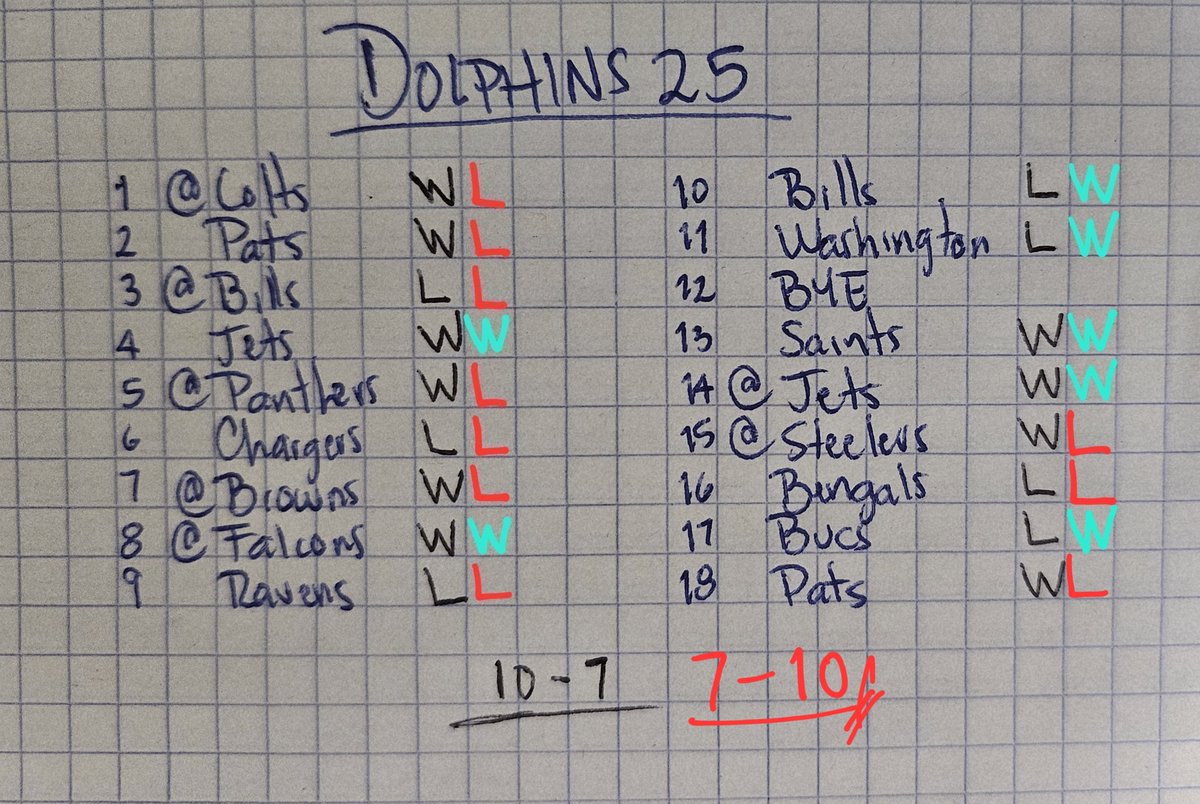 DOLPHINS 25
1 @ Colts W L
2 Pats W L
3 @ Bills L L
4 Jets W W
5 @ Panthers W L
6 Chargers L L
7 @ Browns W L
8 @ Falcons W W
9 Ravens L L
10 Bills L W
11 Washington L W
12 BYE
13 Saints W W
14 @ Jets W W
15 @ Steelers W L
16 Bengals L L
17 Bucs L W
18 Pats W L
10-7 7-10